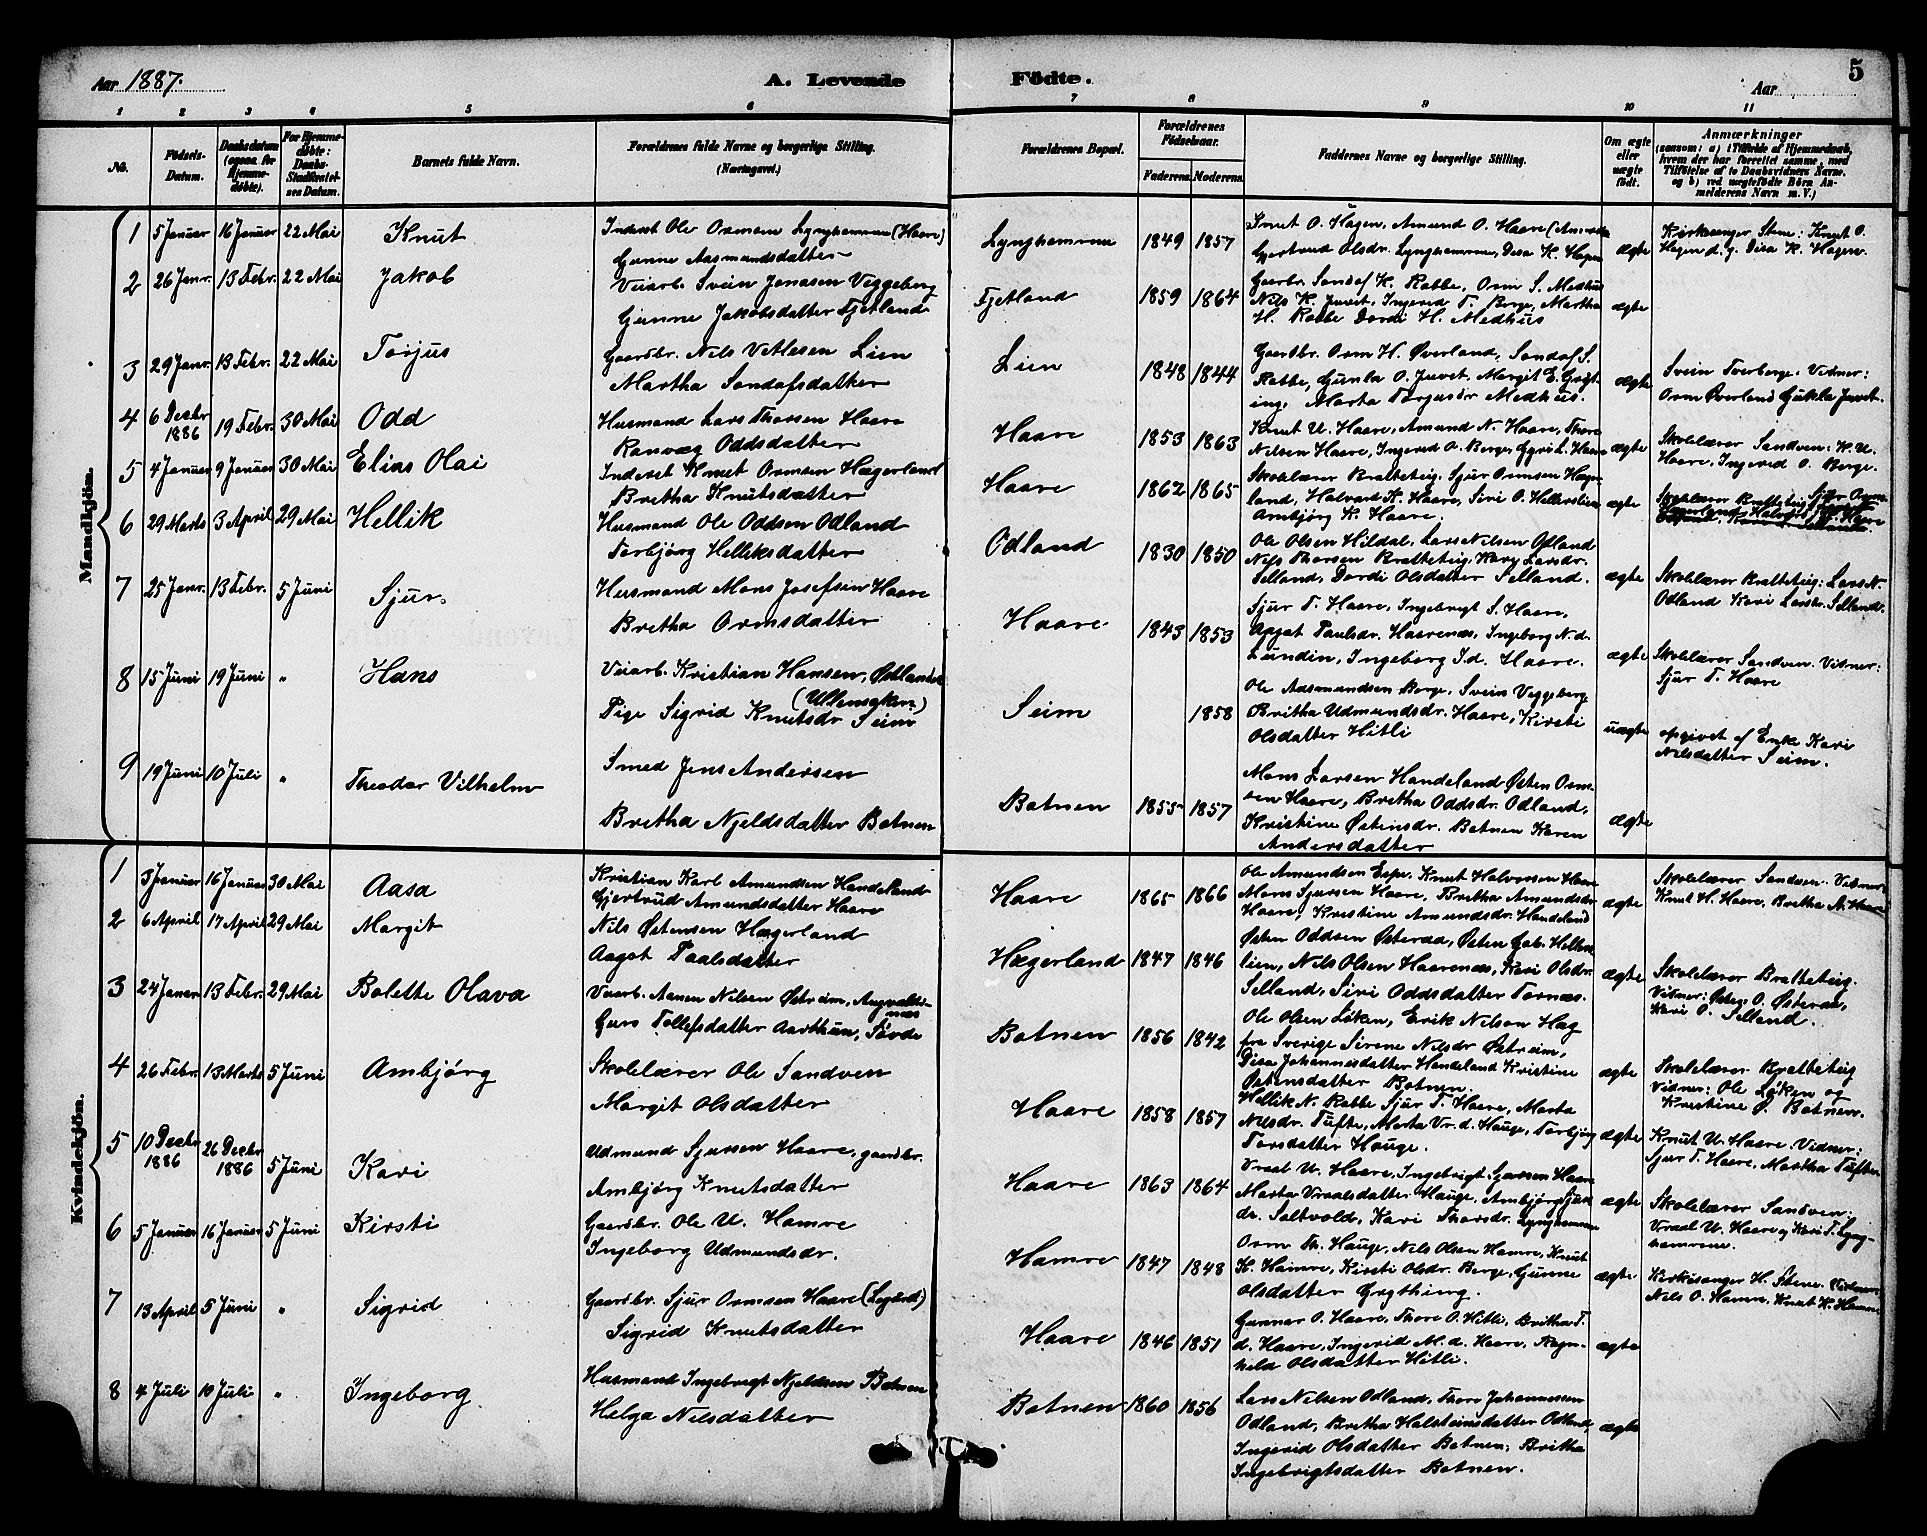 Aar 1887.
A. Levende
Födte.
Aar
5
1 2 3 4 5 6 7 8 9 10 11
No.
Födsels-Datum.
Daabsdatum (ogsaa for Hjemme-døbte).
For Hjemme-døbte: Daabs-Stadfæstel-ses Datum.
Barnets fulde Navn.
Forældrenes fulde Navne og borgerlige Stilling. (Næringsvei.)
Forældrenes Bopæl.
Forældrenes Födselsaar.
Faderens. Moderens.
Faddernes Navne og borgerlige Stilling.
Om ægte eller uægte födt.
Anmærkninger
(saasom: a) i Tilfælde af Hjemmedaab, hvem der har forrettet samme, med Tilföielse af to Daabsvidners Navne, og b) ved uægtefödte Börn An-melderens Navn m. V.)
Mandkjön.
1 5 Januar 16 Januar 22 Mai Knut
Inderst Ole Ormsen Lynghammer (Haare)
Gunne Aasmundsdatter
Lynghammer 1849 1857
Knut O. Hagen, Amund O. Haare
Gjertrud Olsdr. Lynghamme, Disa K. Hagen
ægte
Kirkesanger Stene: Knut O.
Hagen d.g. Disa K. Hagen.
2 26 Janr. 13 Febr. 22 Mai Jakob
Veiarb. Svein Jonasen Veggeberg
Gunne Jakobsdatter Fjetland
Fjetland 1859 1864
Gaarbr. Sondof K. Rabbe, Orm S. Medhus
Nils K. Juvet, Ingerid T. Berge, Martha
H. Rabbe Dordi H. Medhus
ægte
3 29 Janr. 13 Febr. 22 Mai Torjus
Gaardbr. Nils Vetlesen Lien
Martha Sondofsdatter
Lien 1848 1844
Gaardbr. Orm H. Øverland, Sondof S.
Rabbe, Gunla O. Juvet, Margit E. Gryt-
ing, Marta Torjusdr Medhus.
ægte
Svein Tverberge. Vidner:
Orm Øverland Gunla Juvet.
4 6 Decbr 1886 19 Febr. 30 Mai Odd
Husmand Lars Thorsen Haare
Ranveg Oddsdatter
Haare 1853 1863
Knut U. Haare, Amund N. Haare, Thore
Nilsen Haare, Ingerid O. Berge, Gyri L. Haare
ægte
Skolelærer Sandven: K. U.
Haare, Ingerid O. Berge.
5 4 Januar 9 Januar 30 Mai Elias Olai
Inderst Knut Ormsen Hægerland
Bretha Knutsdatter
Haare 1862 1865
Skolelærer Bratteteig, Sjur Ormsen Hæger-
land, Halvard K. Haare, Siri O. Helleslien
Ambjørg K. Haare.
ægte
Skolelærer Bratteteig, Sjur Orm.
Hægerland, Halvard K. Haare
6 29 Marts 3 April 29 Mai Hellik
Husmand Ole Oddsen Odland
Torbjørg Helliksdatter
Odland 1830 1850
Ole Olsen Hildal, Lars Nilsen Odland
Nils Thorsen Bratteteig, Kary Larsdr.
Selland, Dordi Olsdatter Selland.
ægte
Skolelærer Bratteteig: Lars N.
Odland Kari Larsdr. Selland.
7 25 Janr. 13 Febr. 5 Juni Sjur.
Husmand Mons Josefsen Haare
Bretha Ormsdatter
Haare 1843 1853
Sjur T. Haare, Ingebrigt S. Haare,
Aagot Paulsdr. Haarenæs, Ingeborg N.d.
Lundin, Ingeborg I.d. Haare.
ægte
Skolelærer Sandven. Vidner:
Sjur T. Haare
8 15 Juni 19 Juni " Hans
Veiarb. Kristian Hansen, Østlandet
(Ullensaker)
Pige Sigrid Knutsdr Seim
Seim 1858
Ole Aasmundsen Berge, Svein Veggeberg
Britha Udmundsdr. Haare, Kirsti
Olsdatter Hitli
uægte
opgivet af Enke Kari
Nilsdatter Seim.
9 19 Juni 10 Juli " Theodor Vilhelm
Smed Jens Andersen
Bretha Njeldsdatter Botnen
Botnen 1855 1857
Mons Larsen Handeland Østen Orm-
sen Haare, Bretha Oddsdr. Odland,
Kristine Østensdr. Botnen Karen
Andersdatter
ægte
Kvindekjön.
1 3 Januar 16 Januar 30 Mai Aasa
Kristian Karl Amundsen Handeland
Gjertrud Amundsdatter Haare
Haare 1865 1866
Ole Amundsen Espe, Knut Halvorsen Haare
Mons Sjursen Haare, Bretha Amundsdr
Haare, Kristine Amundsdr. Handeland
ægte
Skolelærer Sandven. Vidner
Knut H. Haare, Bretha A. Haare
2 6 April 17 April 29 Mai Margit
Nils Østensen Hægerland
Aagot Paalsdatter
Hægerland 1847 1846
Østen Oddsen Østeraa, Østen Gab. Helles-
lien, Nils Olsen Haarenæs, Kari Olsdr.
Selland, Siri Oddsdatter Tornæs.
ægte
Skolelærer Bratteteig.
Vidner: Østen O. Østeraa,
Kari O. Selland.
3 24 Januar 13 Febr. 29 Mai Bolette Olava
Veiarb. Aanen Nilsen Østreim, Augvaldsnæs
Guro Tollefsdatter Aarthun, Søvde
Botnen 1856 1842
Ole Olsen Løken, Erik Nelson Hag
fra Sverige Sirene Nilsdr Østreim,
Disa Johannesdatter Handeland Kristine
Østensdatter Botnen.
ægte
Skolelærer Bratteteig
Vidner: Ole Løken og
Kristine Ø. Botnen.
4 26 Febr. 13 Marts 5 Juni Ambjørg
Skolelærer Ole Sandven
Margit Olsdatter
Haare 1858 1857
Hellik N. Rabbe Sjur T. Haare, Marta
Nilsdr. Tufte, Marta Vr.d. Hauge, Torbjørg
Torsdatter Hauge.
ægte
Knut U. Haare. Vidner:
Sjur T. Haare, Martha Tufte
5 10 Decbr 1886 26 Decbr 1886 5 Juni Kari
Udmund Sjursen Haare, gaardbr.
Ambjørg Knutsdatter
Haare 1863 1864
Vraal U. Haare, Ingebrigt Garssen Haare
Marta Vraalsdatter Hauge, Ambjørg Sjurs
dr. Saltvold, Kari Thorsdr. Lynghamme
ægte
Skolelærer Sandven:
Vraal U. Haare og Kari T. Lyng-
hammene.
6 5 Januar 16 Januar 5 Juni Kirsti
Gaardbr. Ole U. Hamre
Ingeborg Udmundsdr.
Hamre 1847 1848
Orm Th. Hauge, Nils Olsen Hamre, Knut
K. Hamre, Kirsti Olsdr. Berge, Gunne
Olsdatter Grything.
ægte
Kirkesanger H. Stene. Vidner
Nils O. Hamre, Knut K. Hamre
7 13 April 5 Juni " Sigrid
Gaardbr. Sjur Ormsen Haare
Sigrid Knutsdatter
Haare 1846 1851
Gunnar O. Haare, Thore O. Hitli, Britha T.
d. Haare, Ingerid M.d. Haare, Ragn-
hild Olsdatter Hitli.
ægte
8 4 Juli 10 Juli " Ingeborg
Husmand Ingebrigt Njeldsen Botnen
Helga Nilsdatter
Botnen 1860 1856
Lars Nilsen Odland, Thore Johannessen
Odland, Bretha Halsteinsdatter Odland,
Ingerid Olsdatter Botnen, Britha
Ingebrigtsdatter Botnen.
ægte